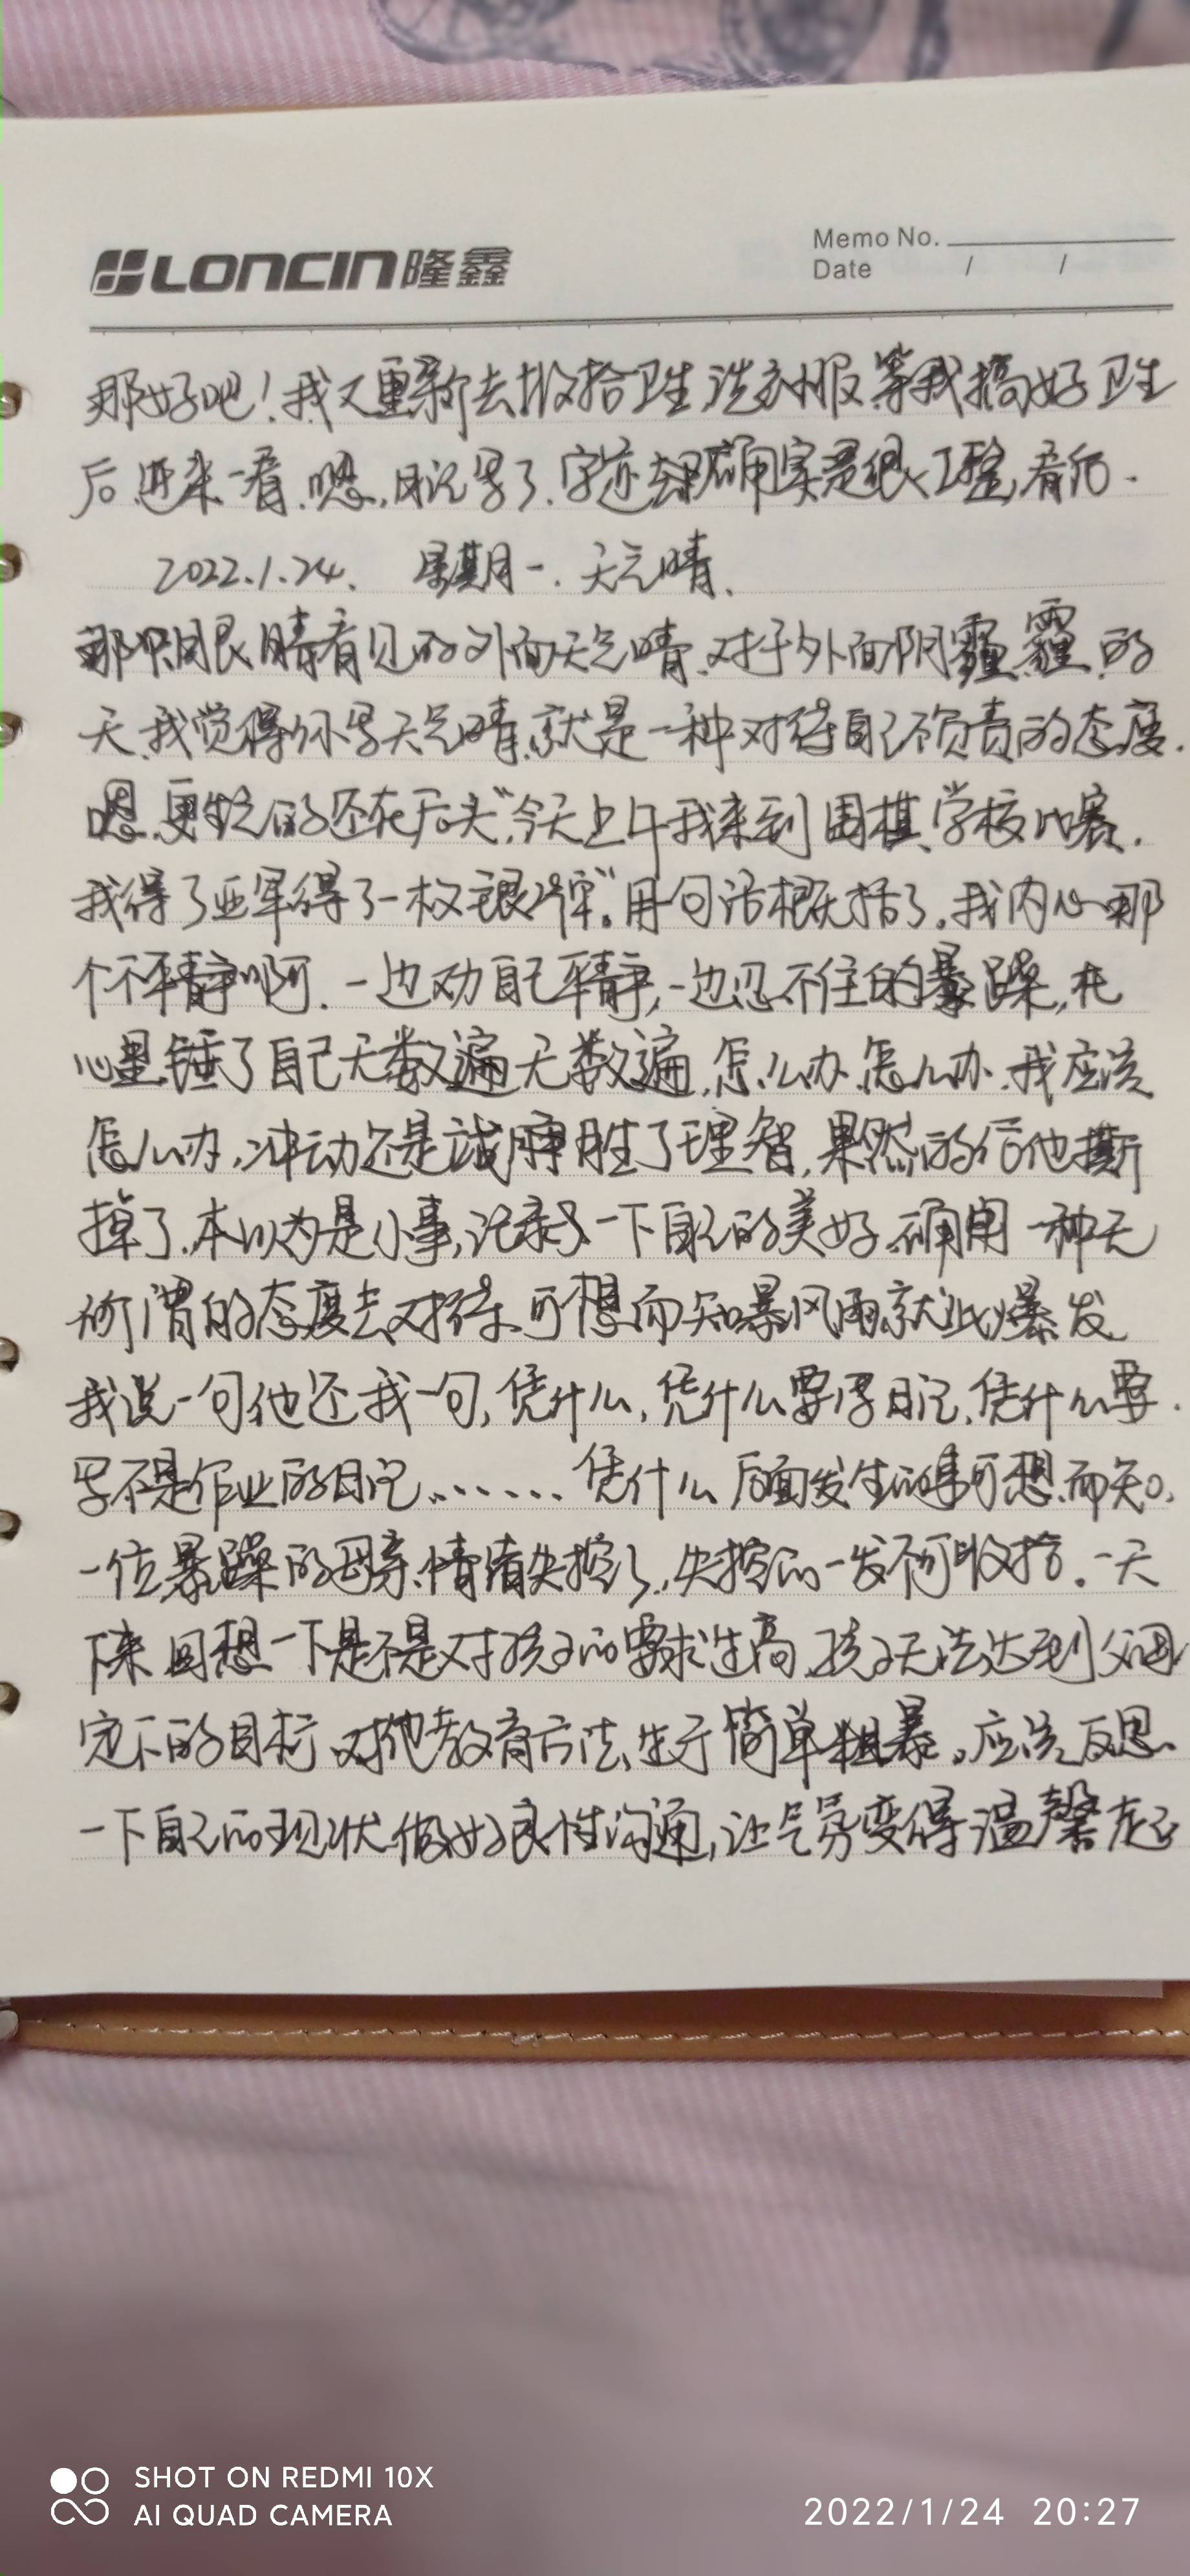 LONCIN隆鑫
Memo No.
Date / /
那好吧！我又重新去收拾卫生洗衣服等我搞好卫生
后进来一看.嗯,日记写了.字迹确实是很工整,看后.
2022.1.24. 星期一.天气晴.
那只眼睛看见的外面天气晴.对于外面阴霾霾的
天.我觉得你写天气晴.就是一种对待自己不负责的态度.
嗯.更生气的还在后头"今天上午我来到围棋学校比赛.
我得了亚军得了一枚银牌"。用一句话概括了.我内心那
个不平静啊.一边劝自己平静,一边忍不住的暴躁,在
心里锤了自己无数遍无数遍,怎么办.怎么办.我应该
怎么办,冲动还是战胜了理智,果然的给他撕
掉了.本以为是小事,记录一下自己的美好.确用一种无
所谓的态度去对待.可想而知暴风雨就此爆发
我说一句他还我一句,凭什么,凭什么要写日记,凭什么要.
写不是作业的日记......凭什么后面发生的事可想而知.
一位暴躁的母亲,情绪失控了,失控的一发不可收拾.一天
下来回想一下是不是对孩子的要求过高,孩子无法达到
定下的目标.对他教育方法过于简单粗暴。应该反思
一下自己的现状.做好良性沟通,让气氛变得温馨
SHOT ON REDMI 10X
AI QUAD CAMERA
2022/1/24 20:27